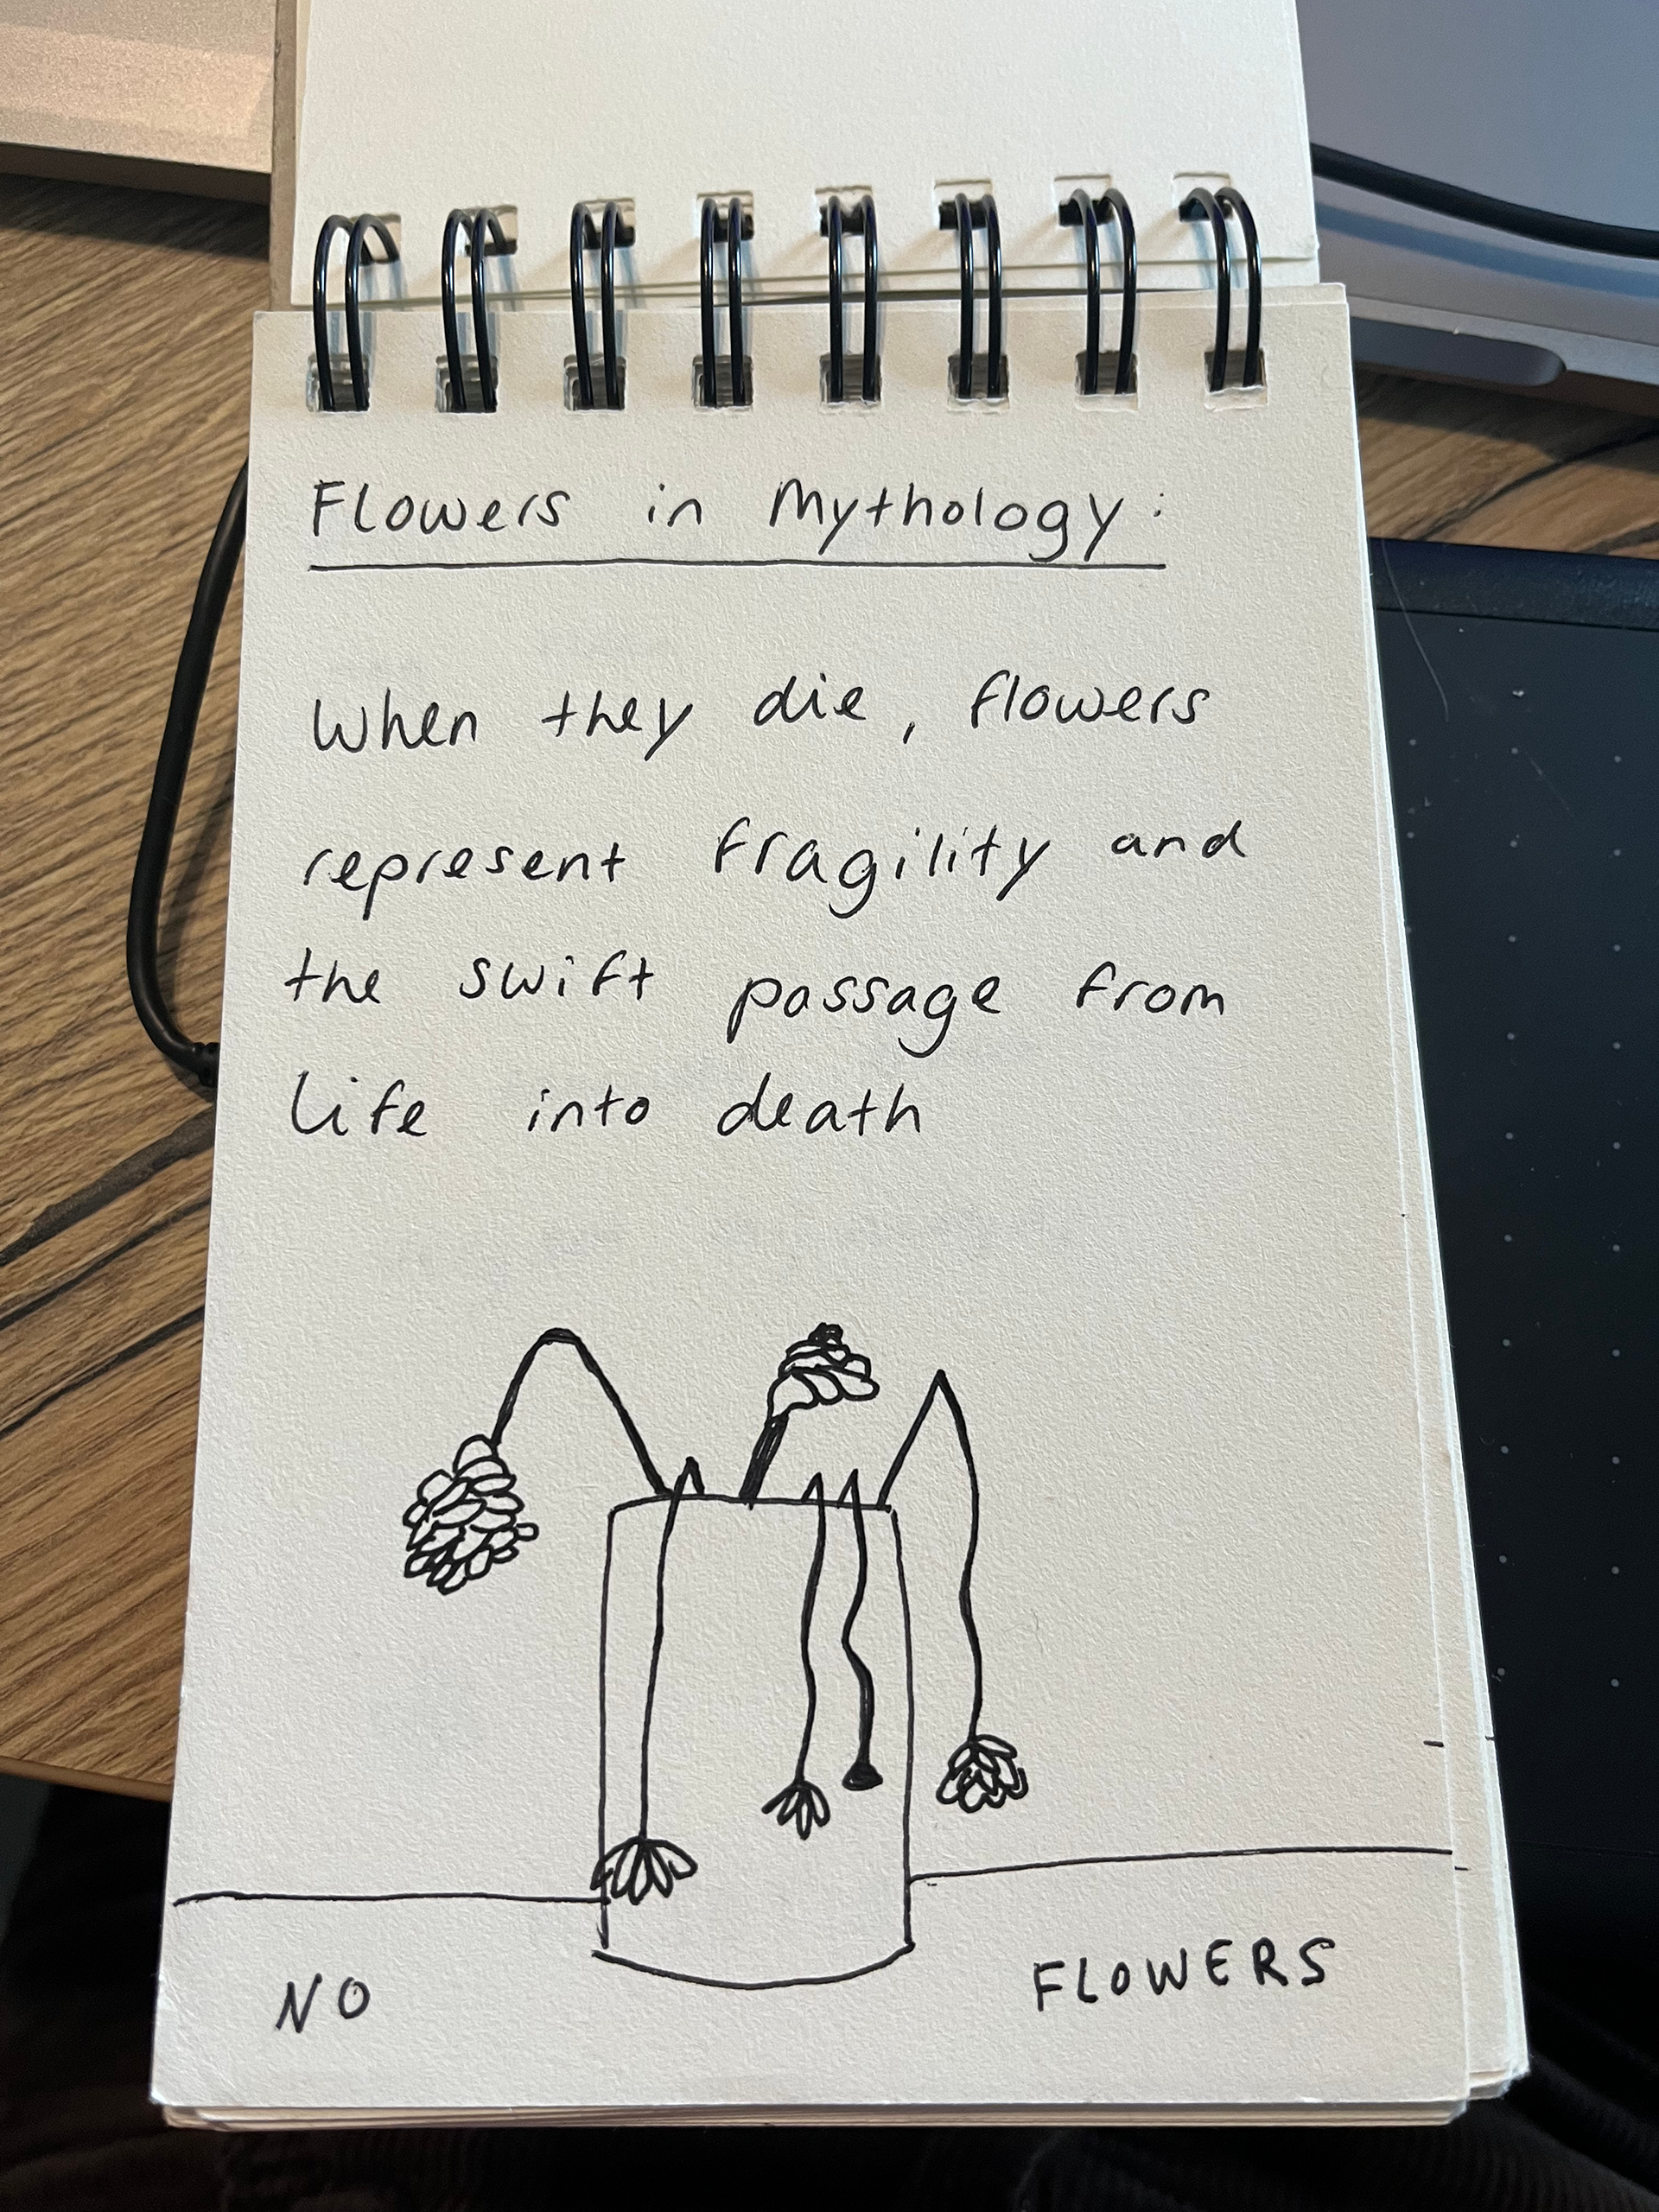 Flowers in Mythology:
When they die, flowers
represent fragility and
the swift passage from
life into death
NO FLOWERS